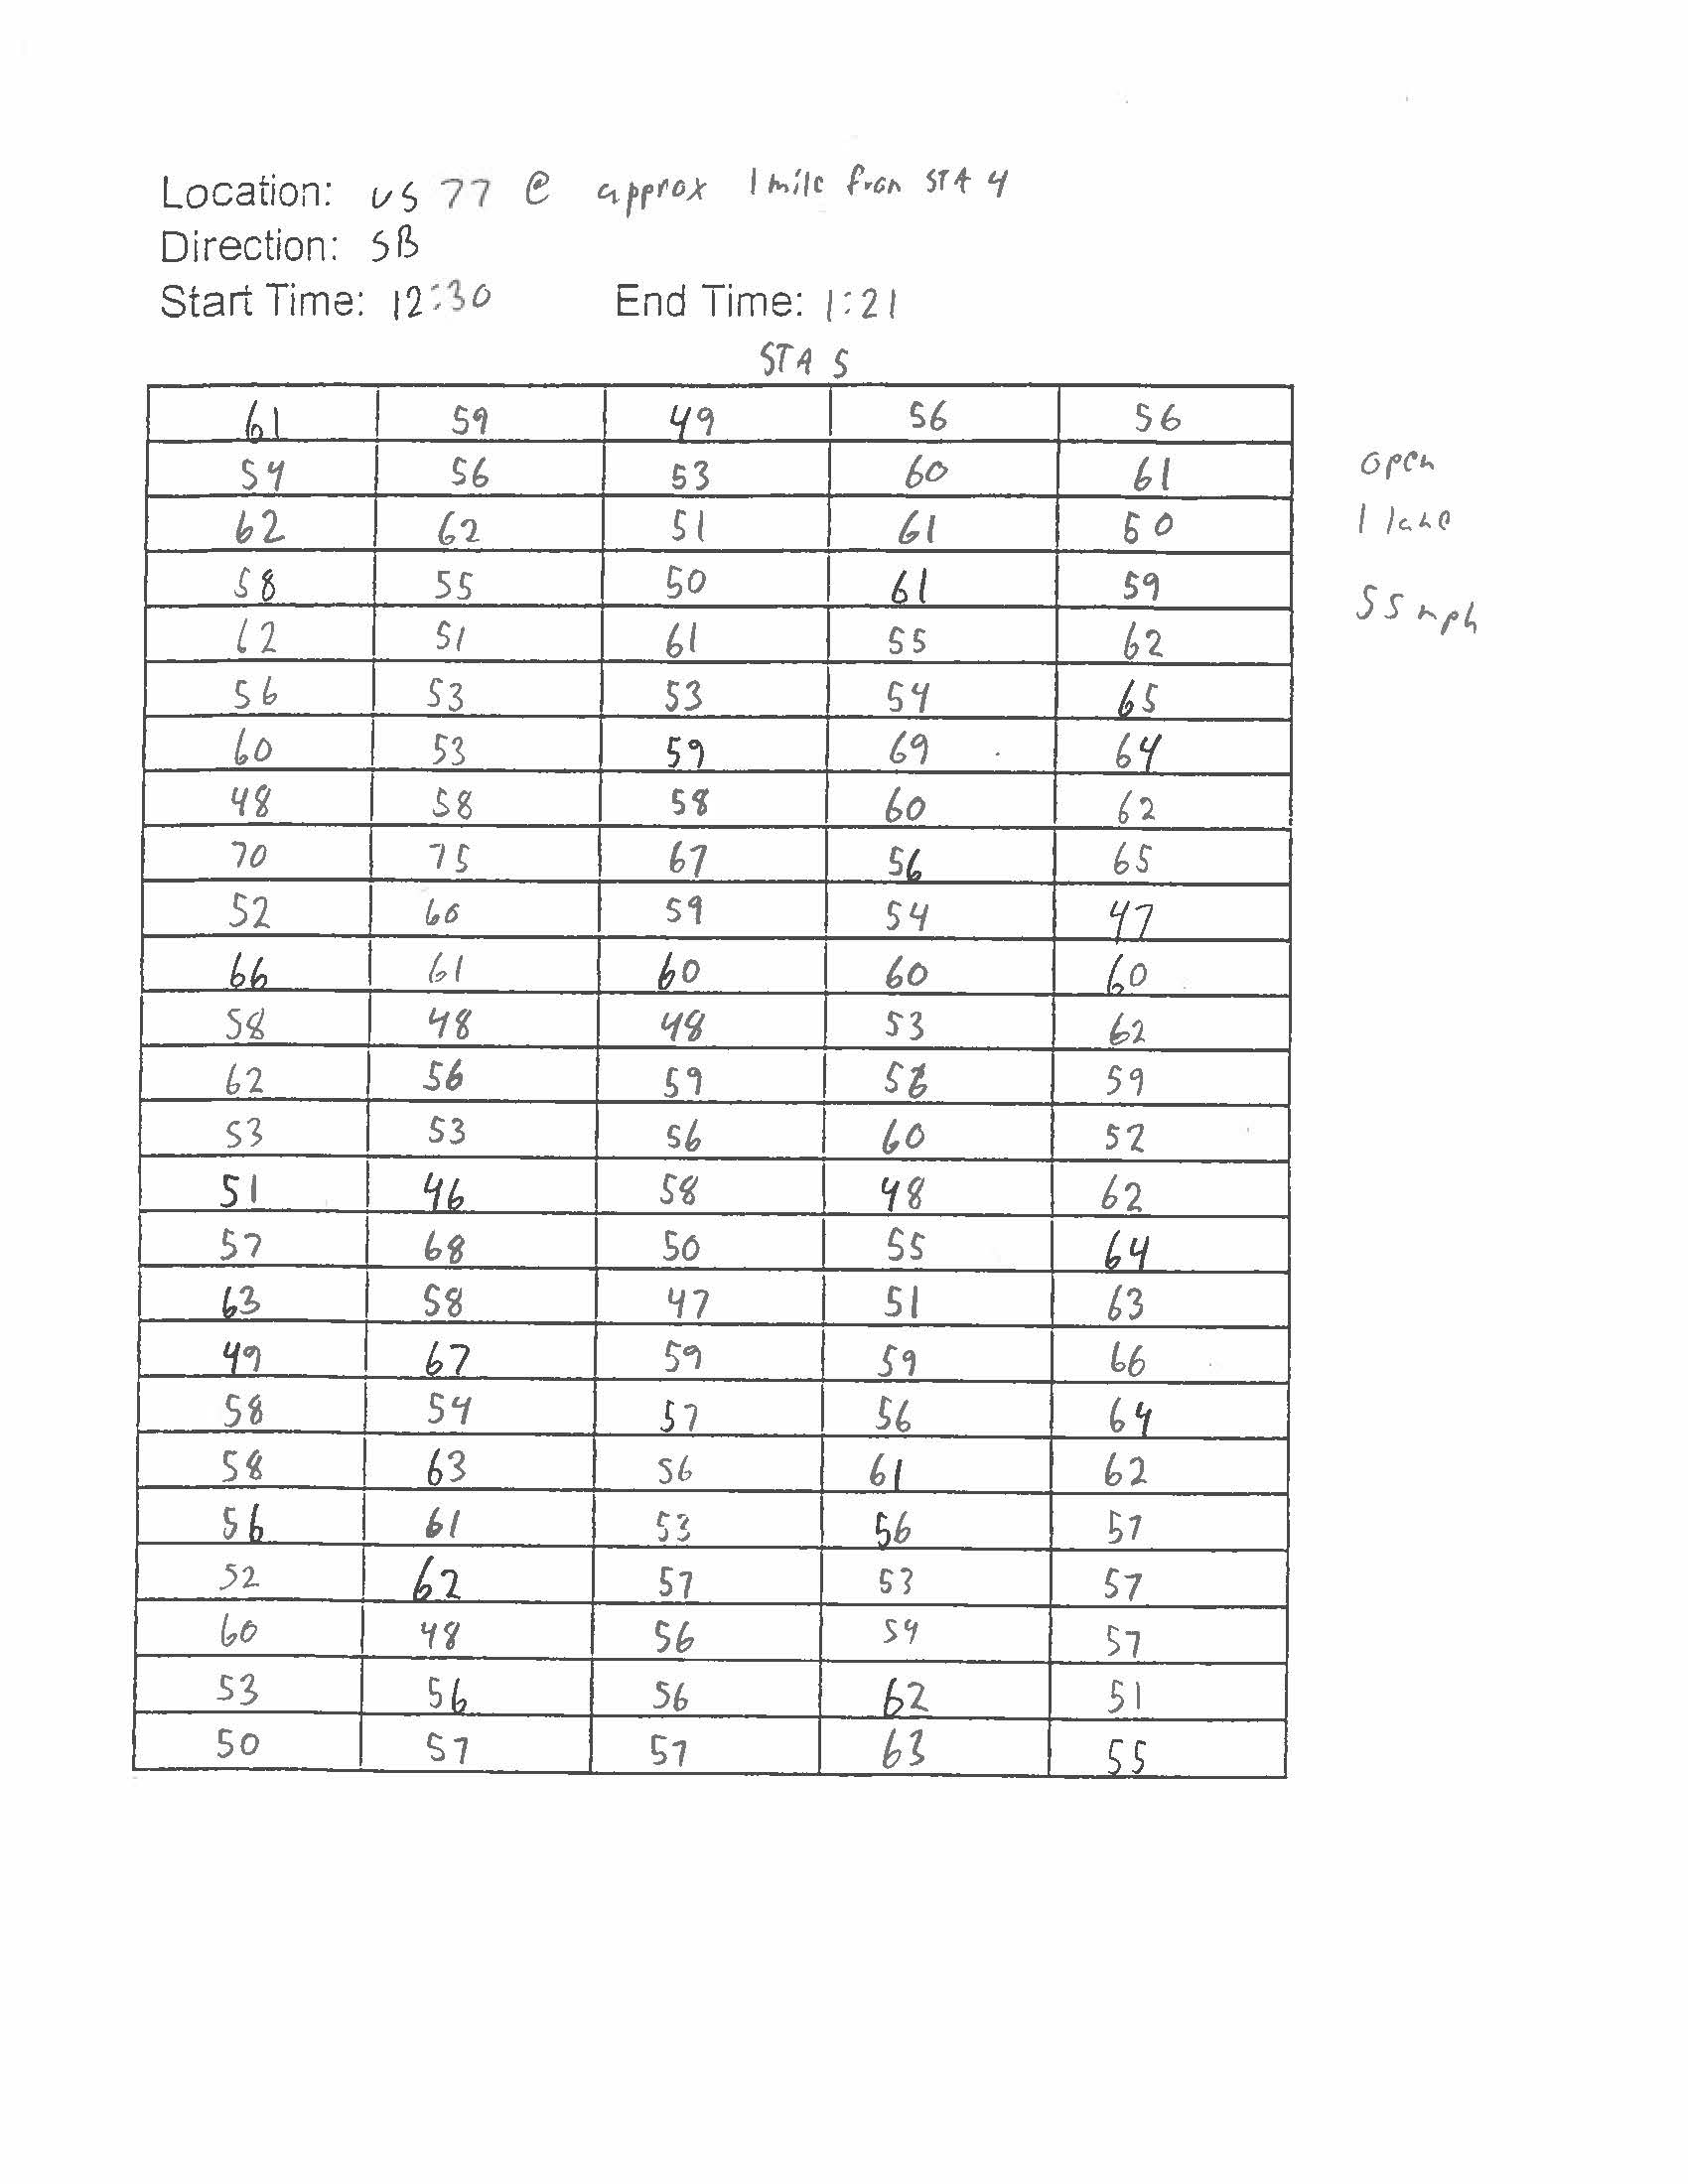 Location: US 77 @ approx 1 mile from STA 4
Direction: SB
Start Time: 12:30 End Time: 1:21
STA 5
61 59 49 56 56
54 56 53 60 61
open
62 62 51 61 50
1 lane
58 55 50 61 59
55 mph
62 51 61 55 62
56 53 53 54 65
60 53 59 69 64
48 58 58 60 62
70 75 67 56 65
52 60 59 54 47
66 61 60 60 60
58 48 48 53 62
62 56 59 59
53 53 56 60 52
51 46 58 48 62
57 68 50 55 64
63 58 47 51 63
49 67 59 59 66
58 54 57 56 64
58 63 56 61 62
56 61 53 56 57
52 62 57 53 57
60 48 56 54 57
53 56 56 62 51
50 57 57 63 55